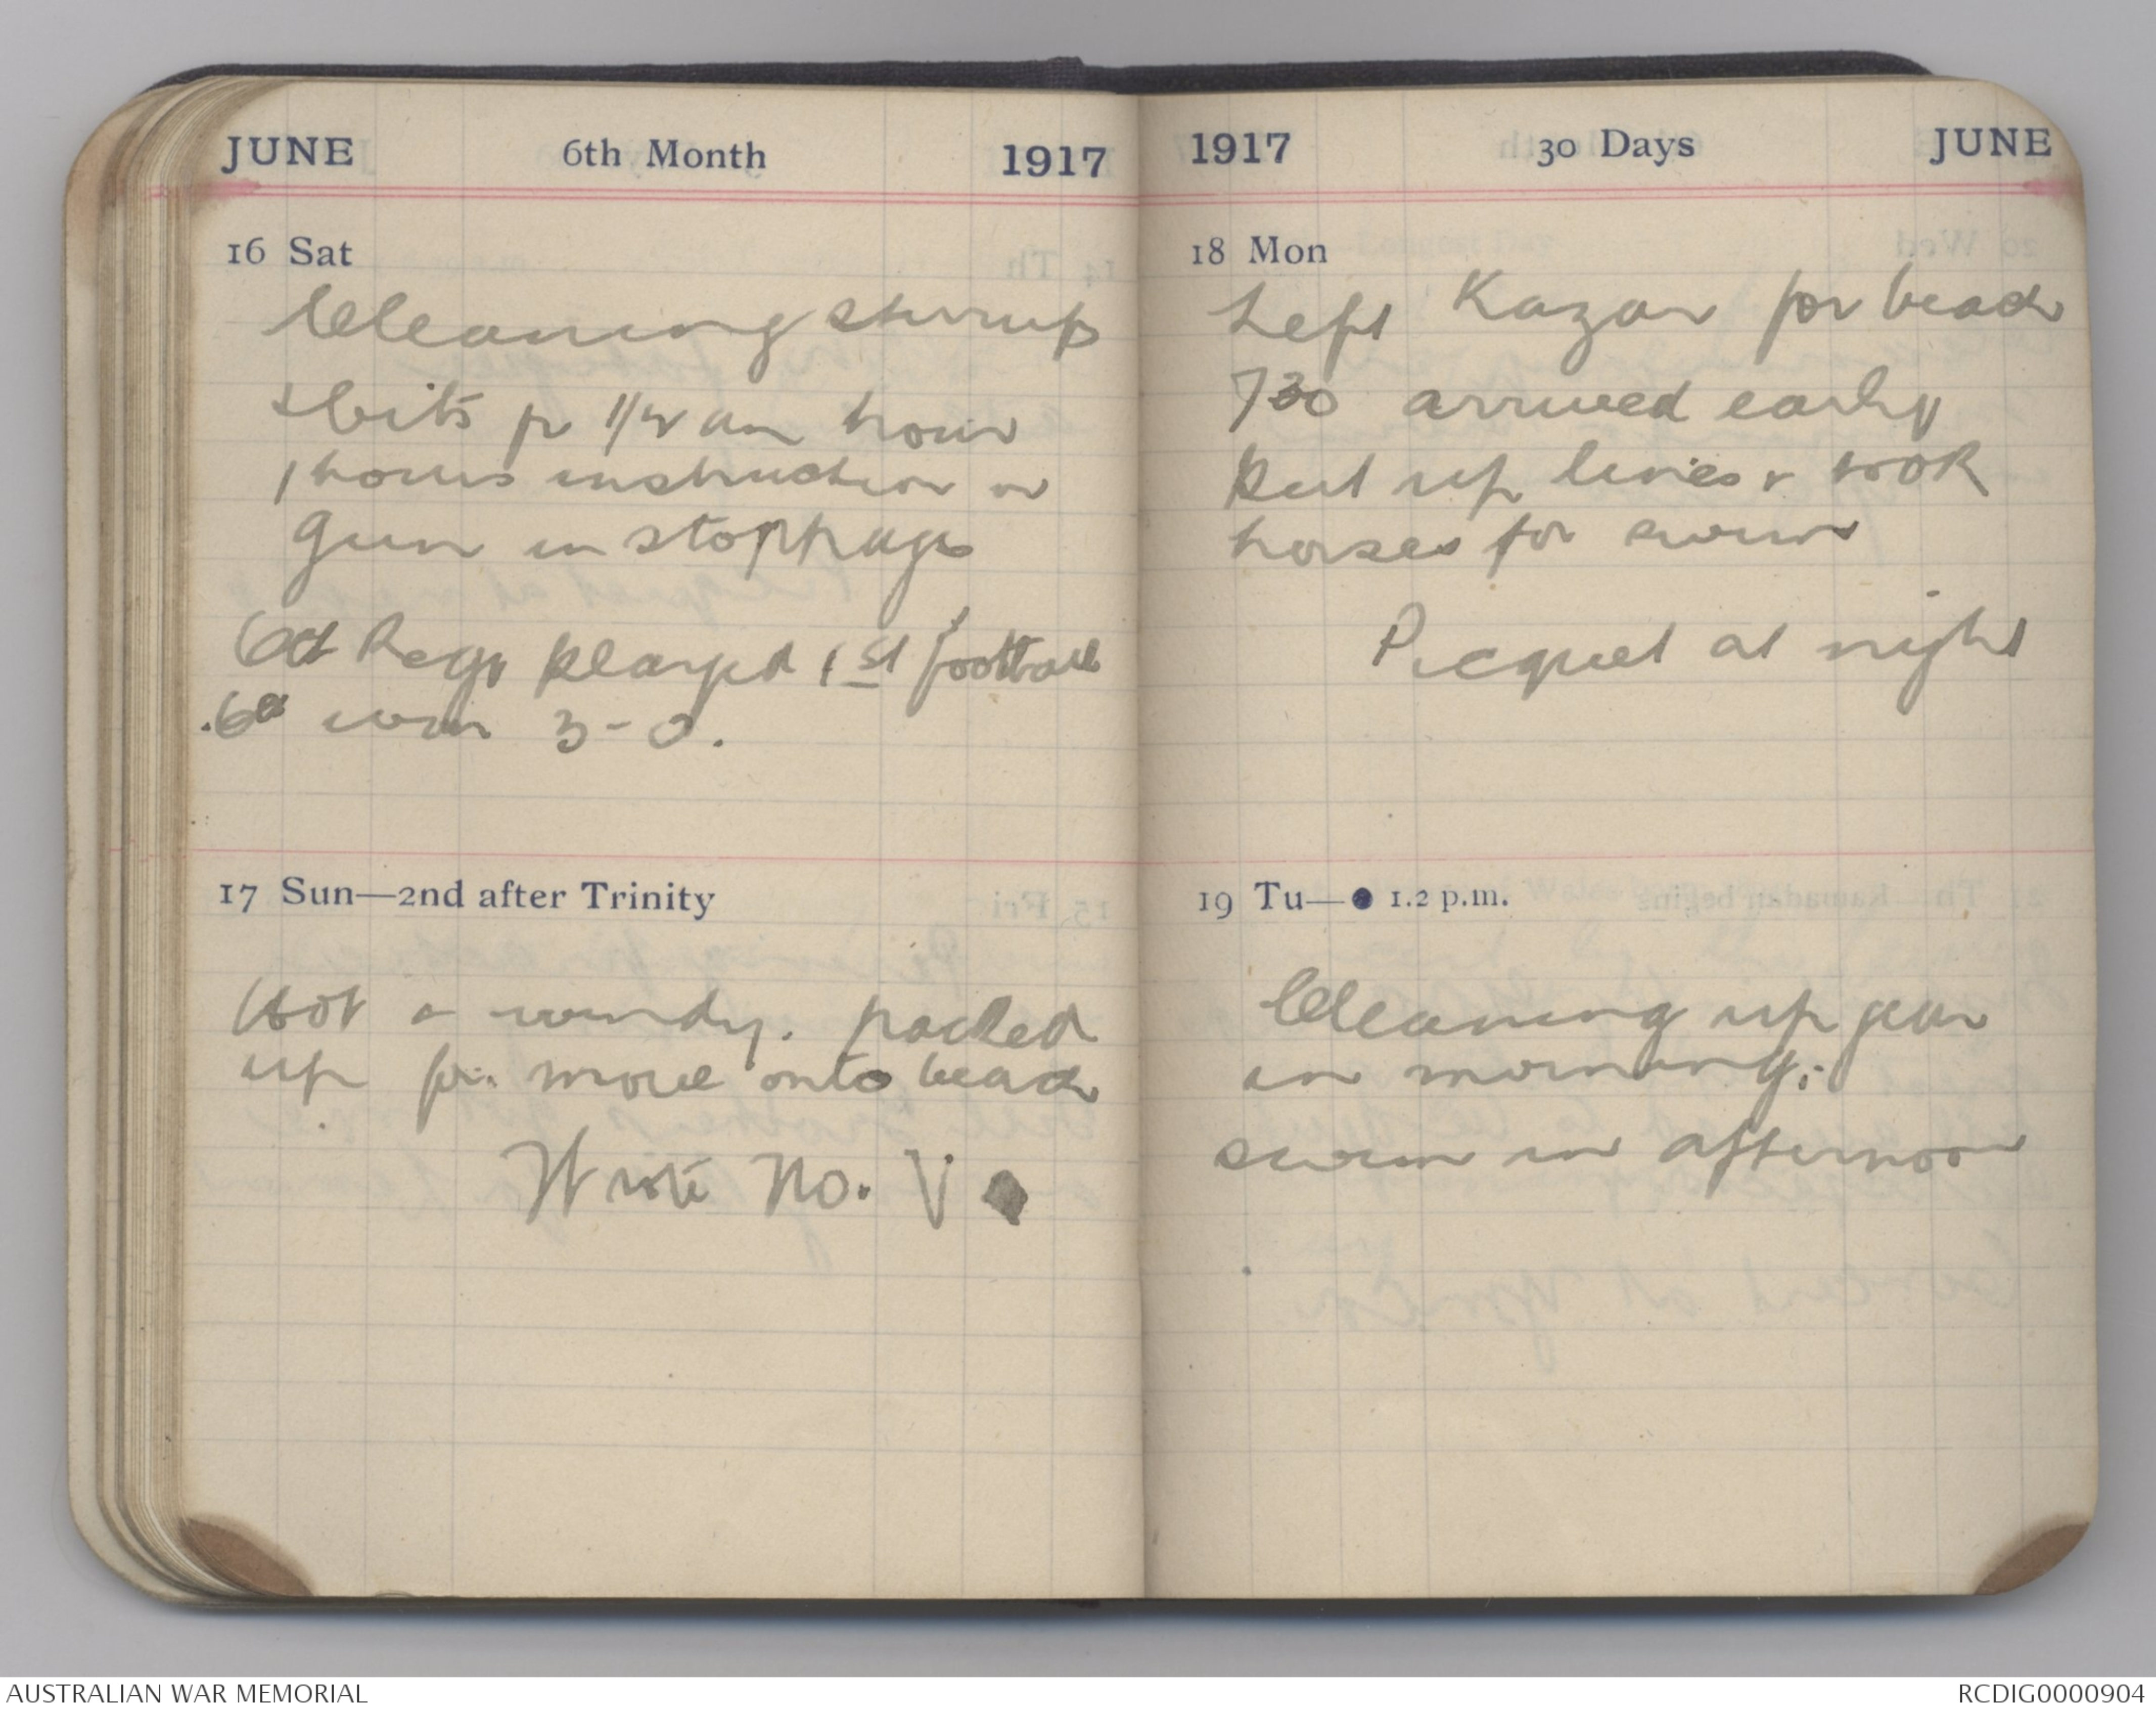 JUNE 6th Month 1917
16 Sat
Cleaning stirrups
& bits for 1/2 an hour
1 hours instruction on
gun in stoppages
6th Regt played 1st football
6th won 3-0.
17 Sun—2nd after Trinity
Hot & windy. packed
up for move onto beach
Write No. V
1917 30 Days JUNE
18 Mon
Left Kazar for beach
730 arrived early
put up lines & took
horses for swim
Picquet at night
19 Tu—● 1.2 p.m.
Cleaning up gear
in morning.
swim in afternoon
AUSTRALIAN WAR MEMORIAL
RCDIG0000904